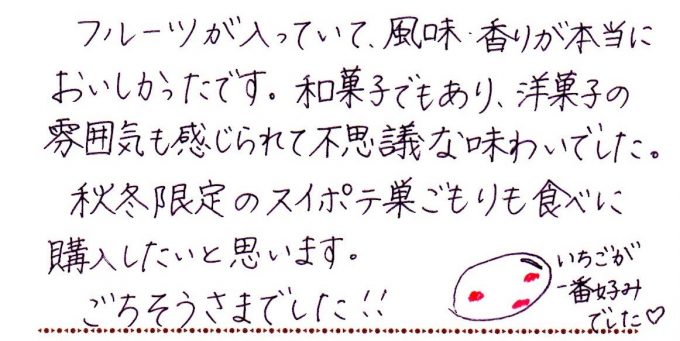 フルーツが入っていて、風味・香りが本当に
おいしかったです。和菓子でもあり、洋菓子の
雰囲気も感じられて不思議な味わいでした。
秋冬限定のスイポテ巣ごもりも食べに
購入したいと思います。
ごちそうさまでした!!
いちごが
一番好み
でした♡